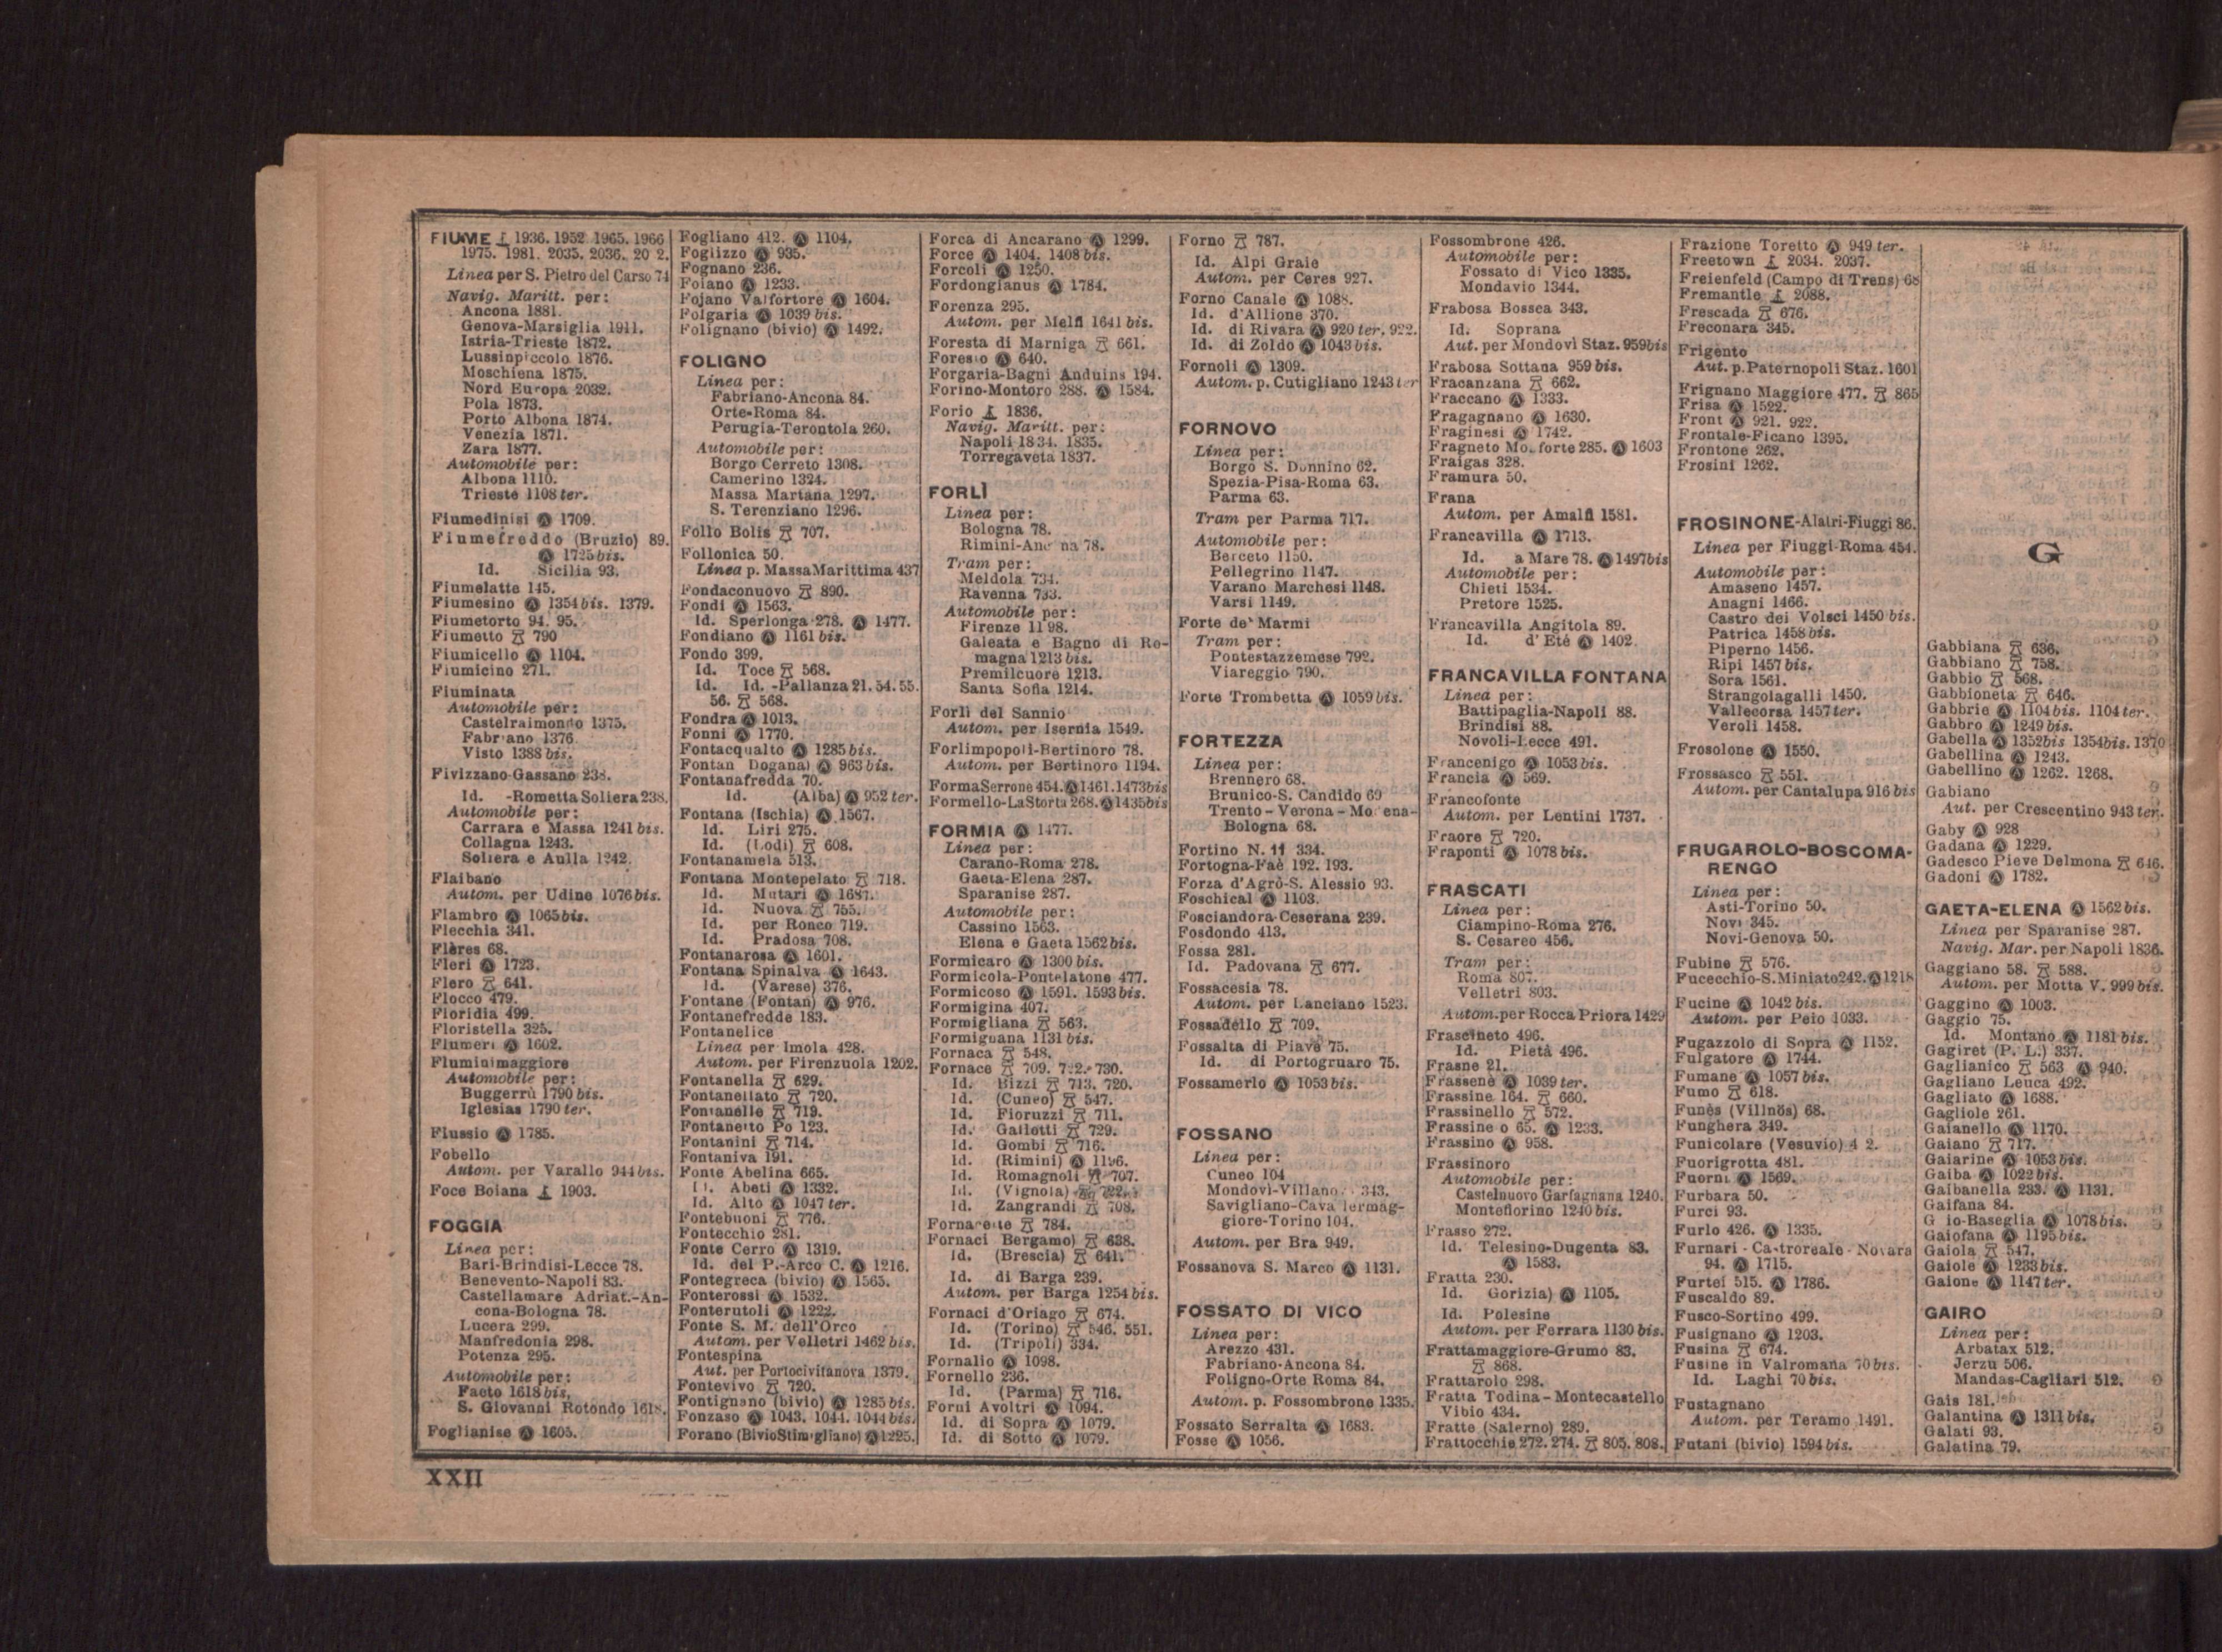 FIUME 1936. 1952. 1965. 1966
1975. 1981. 2035. 2036.
Linea per S. Pietro del Carso 74
Navig. Maritt. per:
Ancona 1881.
Genova-Marsiglia 1911.
Istria-Trieste 1872.
Lussinpiccolo 1876.
Moschiena 1875.
Nord Europa 2032.
Pola 1873.
Porto Albona 1874.
Venezia 1871.
Zara 1877.
Automobile per:
Albona 1110.
Trieste 1108 ter.
Fiumedinisi Ⓐ 1709.
Fiumefreddo (Bruzio) 89.
Ⓐ 1725 bis.
Id. Sicilia 93.
Fiumelatte 145.
Fiumesino Ⓐ 1354 bis. 1379.
Fiumetorto 94. 95.
Fiumetto 790
Fiumicello Ⓐ 1104.
Fiumicino 271.
Fiuminata
Automobile per:
Castelraimondo 1375.
Fabriano 1376.
Visto 1388 bis.
Fivizzano-Gassano 238.
Id. -Rometta Soliera 238.
Automobile per:
Carrara e Massa 1241 bis.
Collagna 1243.
Soliera e Aulla 1242.
Flaibano
Autom. per Udine 1076 bis.
Flambro Ⓐ 1065 bis.
Flecchia 341.
Flères 68.
Fleri Ⓐ 1723.
Flero 641.
Flocco 479.
Floridia 499.
Floristella 325.
Flumeri Ⓐ 1602.
Fluminimaggiore
Automobile per:
Buggerrù 1790 bis.
Iglesias 1790 ter.
Flussio Ⓐ 1785.
Fobello
Autom. per Varallo 944 bis.
Foce Boiana 1903.
FOGGIA
Linea per:
Bari-Brindisi-Lecce 78.
Benevento-Napoli 83.
Castellamare Adriat.-An-
cona-Bologna 78.
Lucera 299.
Manfredonia 298.
Potenza 295.
Automobile per:
Faeto 1618 bis.
S. Giovanni Rotondo 1618.
Foglianise Ⓐ 1605.
Fogliano 412. Ⓐ 1104.
Foglizzo Ⓐ 935.
Fognano 236.
Foiano Ⓐ 1233.
Fojano Valfortore Ⓐ 1604.
Folgaria Ⓐ 1039 bis.
Folignano (bivio) Ⓐ 1492.
FOLIGNO
Linea per:
Fabriano-Ancona 84.
Orte-Roma 84.
Perugia-Terontola 260.
Automobile per:
Borgo Cerreto 1308.
Camerino 1324.
Massa Martana 1297.
S. Terenziano 1296.
Follo Bolis 707.
Follonica 50.
Linea p. Massa Marittima 437
Fondaconuovo 890.
Fondi Ⓐ 1563.
Id. Sperlonga 278. Ⓐ 1477.
Fondiano Ⓐ 1161 bis.
Fondo 399.
Id. Toce 568.
Id. Id. -Pallanza 21. 54. 55.
56. 568.
Fondra Ⓐ 1013.
Fonni Ⓐ 1770.
Fontacqualto Ⓐ 1285 bis.
Fontan Dogana) Ⓐ 963 bis.
Fontanafredda 70.
Id. (Alba) Ⓐ 952 ter.
Fontana (Ischia) Ⓐ 1567.
Id. Liri 275.
Id. (Lodi) 608.
Fontanamela 513.
Fontana Montepelato 718.
Id. Mutari Ⓐ 1687.
Id. Nuova 755.
Id. per Ronco 719.
Id. Pradosa 708.
Fontanarosa Ⓐ 1601.
Fontana Spinalva Ⓐ 1643.
Id. (Varese) 376.
Fontane (Fontan) Ⓐ 976.
Fontanefredde 183.
Fontanelice
Linea per Imola 428.
Autom. per Firenzuola 1202.
Fontanella 629.
Fontanellato 720.
Fontanelle 719.
Fontaneto Po 123.
Fontanini 714.
Fontaniva 191.
Fonte Abelina 665.
Id. Abeti Ⓐ 1332.
Id. Alto Ⓐ 1047 ter.
Fontebuoni 776.
Fontecchio 281.
Fonte Cerro Ⓐ 1319.
Id. del P.-Arco C. Ⓐ 1216.
Fontegreca (bivio) Ⓐ 1565.
Fonterossi Ⓐ 1532.
Fonterutoli Ⓐ 1222.
Fonte S. M. dell'Orco
Autom. per Velletri 1462 bis.
Fontespina
Aut. per Portocivitanova 1379.
Fontevivo 720.
Fontignano (bivio) Ⓐ 1285 bis.
Fonzaso Ⓐ 1043. 1044. 1044 bis.
Forano (Bivio Stimigliano) Ⓐ 1225.
Forca di Ancarano Ⓐ 1299.
Force Ⓐ 1404. 1408 bis.
Forcoli Ⓐ 1250.
Fordongianus Ⓐ 1784.
Forenza 295.
Autom. per Melfi 1641 bis.
Foresta di Marniga 661.
Foresto Ⓐ 640.
Forgaria-Bagni Anduins 194.
Forino-Montoro 288. Ⓐ 1584.
Forio 1836.
Navig. Maritt. per:
Napoli 1834. 1835.
Torregaveta 1837.
FORLÌ
Linea per:
Bologna 78.
Rimini-Ancona 78.
Tram per:
Meldola 734.
Ravenna 733.
Automobile per:
Firenze 1198.
Galeata e Bagno di Ro-
magna 1213 bis.
Premilcuore 1213.
Santa Sofia 1214.
Forlì del Sannio
Autom. per Isernia 1549.
Forlimpopoli-Bertinoro 78.
Autom. per Bertinoro 1194.
Forma Serrone 454. Ⓐ 1461. 1473 bis
Formello-La Storta 268. Ⓐ 1435 bis
FORMIA Ⓐ 1477.
Linea per:
Carano-Roma 278.
Gaeta-Elena 287.
Sparanise 287.
Automobile per:
Cassino 1563.
Elena e Gaeta 1562 bis.
Formicaro Ⓐ 1300 bis.
Formicola-Pontelatone 477.
Formicoso Ⓐ 1591. 1593 bis.
Formigina 407.
Formigliana 563.
Formignana 1131 bis.
Fornaca 548.
Fornace 709. 722. 730.
Id. Bizzi 713. 720.
Id. (Cuneo) 547.
Id. Fioruzzi 711.
Id. Gallotti 729.
Id. Gombi 716.
Id. (Rimini) Ⓐ 1196.
Id. Romagnoli 707.
Id. (Vignola) 722.
Id. Zangrandi 708.
Fornacette 784.
Fornaci Bergamo) 638.
Id. (Brescia) 641.
Id. di Barga 239.
Autom. per Barga 1254 bis.
Fornaci d'Oriago 674.
Id. (Torino) 546. 551.
Id. (Tripoli) 334.
Fornalio Ⓐ 1098.
Fornello 236.
Id. (Parma) 716.
Forni Avoltri Ⓐ 1094.
Id. di Sopra Ⓐ 1079.
Id. di Sotto Ⓐ 1079.
Forno 787.
Id. Alpi Graie
Autom. per Ceres 927.
Forno Canale Ⓐ 1088.
Id. d'Allione 370.
Id. di Rivara Ⓐ 920 ter. 922.
Id. di Zoldo Ⓐ 1043 bis.
Fornoli Ⓐ 1309.
Autom. p. Cutigliano 1243 ter
FORNOVO
Linea per:
Borgo S. Donnino 62.
Spezia-Pisa-Roma 63.
Parma 63.
Tram per Parma 717.
Automobile per:
Berceto 1150.
Pellegrino 1147.
Varano Marchesi 1148.
Varsi 1149.
Forte de' Marmi
Tram per:
Pontestazzemese 792.
Viareggio 790.
Forte Trombetta Ⓐ 1059 bis.
FORTEZZA
Linea per:
Brennero 68.
Brunico-S. Candido 69
Trento - Verona - Modena-
Bologna 68.
Fortino N. 11 334.
Fortogna-Faè 192. 193.
Forza d'Agrò-S. Alessio 93.
Foschical Ⓐ 1103.
Fosciandora-Ceserana 239.
Fosdondo 413.
Fossa 281.
Id. Padovana 677.
Fossacesia 78.
Autom. per Lanciano 1523.
Fossadello 709.
Fossalta di Piave 75.
Id. di Portogruaro 75.
Fossamerlo Ⓐ 1053 bis.
FOSSANO
Linea per:
Cuneo 104
Mondovì-Villano 343.
Savigliano-Cavallermag-
giore-Torino 104.
Autom. per Bra 949.
Fossanova S. Marco Ⓐ 1131.
FOSSATO DI VICO
Linea per:
Arezzo 431.
Fabriano-Ancona 84.
Foligno-Orte Roma 84.
Autom. p. Fossombrone 1335.
Fossato Serralta Ⓐ 1683.
Fosse Ⓐ 1056.
Fossombrone 426.
Automobile per:
Fossato di Vico 1335.
Mondavio 1344.
Frabosa Bossea 343.
Id. Soprana
Aut. per Mondovì Staz. 959 bis
Frabosa Sottana 959 bis.
Fracanzana 662.
Fraccano Ⓐ 1333.
Fragagnano Ⓐ 1630.
Fraginesi Ⓐ 1742.
Fragneto Monforte 285. Ⓐ 1603
Fraigas 328.
Framura 50.
Frana
Autom. per Amalfi 1581.
Francavilla Ⓐ 1713.
Id. a Mare 78. Ⓐ 1497 bis
Automobile per:
Chieti 1534.
Pretore 1525.
Francavilla Angitola 89.
Id. d'Eté Ⓐ 1402.
FRANCAVILLA FONTANA
Linea per:
Battipaglia-Napoli 88.
Brindisi 88.
Novoli-Lecce 491.
Francenigo Ⓐ 1053 bis.
Francia Ⓐ 569.
Francofonte
Autom. per Lentini 1737.
Fraore 720.
Fraponti Ⓐ 1078 bis.
FRASCATI
Linea per:
Ciampino-Roma 276.
S. Cesareo 456.
Tram per:
Roma 807.
Velletri 803.
Autom. per Rocca Priora 1429
Frascineto 496.
Id. Pietà 496.
Frasne 21.
Frassenè Ⓐ 1039 ter.
Frassine 164. 660.
Frassinello 572.
Frassineto 65. Ⓐ 1233.
Frassino Ⓐ 958.
Frassinoro
Automobile per:
Castelnuovo Garfagnana 1240.
Montefiorino 1240 bis.
Frasso 272.
Id. Telesino-Dugenta 83.
Ⓐ 1583.
Fratta 230.
Id. Gorizia) Ⓐ 1105.
Id. Polesine
Autom. per Ferrara 1130 bis.
Frattamaggiore-Grumo 83.
868.
Frattarolo 298.
Fratta Todina-Montecastello
Vibio 434.
Fratte (Salerno) 289.
Frattocchie 272. 274. 805. 808.
Frazione Toretto Ⓐ 949 ter.
Freetown 2034. 2037.
Freienfeld (Campo di Trens) 68
Fremantle 2088.
Frescada 676.
Freconara 345.
Frigento
Aut. p. Paternopoli Staz. 1601
Frignano Maggiore 477. 865
Frisa Ⓐ 1522.
Front Ⓐ 921. 922.
Frontale-Ficano 1395.
Frontone 262.
Frosini 1262.
FROSINONE-Alatri-Fiuggi 86.
Linea per Fiuggi-Roma 454.
Automobile per:
Amaseno 1457.
Anagni 1466.
Castro dei Volsci 1450 bis.
Patrica 1458 bis.
Piperno 1456.
Ripi 1457 bis.
Sora 1561.
Strangolagalli 1450.
Vallecorsa 1457 ter.
Veroli 1458.
Frosolone Ⓐ 1550.
Frossasco 551.
Autom. per Cantalupa 916 bis
FRUGAROLO-BOSCOMA-
RENGO
Linea per:
Asti-Torino 50.
Novi 345.
Novi-Genova 50.
Fubine 576.
Fucecchio-S. Miniato 242. Ⓐ 1218
Fucine Ⓐ 1042 bis.
Autom. per Peio 1033.
Fugazzolo di Sopra Ⓐ 1152.
Fulgatore Ⓐ 1744.
Fumane Ⓐ 1057 bis.
Fumo 618.
Funès (Villnös) 68.
Funghera 349.
Funicolare (Vesuvio)
Fuorigrotta 481.
Fuorni Ⓐ 1569.
Furbara 50.
Furci 93.
Furlo 426. Ⓐ 1335.
Furnari - Castroreale - Novara
94. Ⓐ 1715.
Furtei 515. Ⓐ 1786.
Fuscaldo 89.
Fusco-Sortino 499.
Fusignano Ⓐ 1203.
Fusina 674.
Fusine in Valromana 70 bis.
Id. Laghi 70 bis.
Fustagnano
Autom. per Teramo 1491.
Futani (bivio) 1594 bis.
G
Gabbiana 636.
Gabbiano 758.
Gabbio 568.
Gabbioneta 646.
Gabbrie Ⓐ 1104 bis. 1104 ter.
Gabbro Ⓐ 1249 bis.
Gabella Ⓐ 1352 bis 1354 bis. 1370
Gabellina Ⓐ 1243.
Gabellino Ⓐ 1262. 1268.
Gabiano
Aut. per Crescentino 943 ter.
Gaby Ⓐ 928
Gadana Ⓐ 1229.
Gadesco Pieve Delmona 646.
Gadoni Ⓐ 1782.
GAETA-ELENA Ⓐ 1562 bis.
Linea per Sparanise 287.
Navig. Mar. per Napoli 1836.
Gaggiano 58. 588.
Autom. per Motta V. 999 bis.
Gaggino Ⓐ 1003.
Gaggio 75.
Id. Montano Ⓐ 1181 bis.
Gagiret (P. L.) 337.
Gaglianico 563 Ⓐ 940.
Gagliano Leuca 492.
Gagliato Ⓐ 1688.
Gagliole 261.
Gaianello Ⓐ 1170.
Gaiano 717.
Gaiarine Ⓐ 1053 bis.
Gaiba Ⓐ 1022 bis.
Gaibanella 233. Ⓐ 1131.
Gaifana 84.
Ⓐ 1078 bis.
Gaiofana Ⓐ 1195 bis.
Gaiola 547.
Gaiole Ⓐ 1233 bis.
Gaione Ⓐ 1147 ter.
GAIRO
Linea per:
Arbatax 512.
Jerzu 506.
Mandas-Cagliari 512.
Gais 181.
Galantina Ⓐ 1311 bis.
Galati 93.
Galatina 79.
XXII